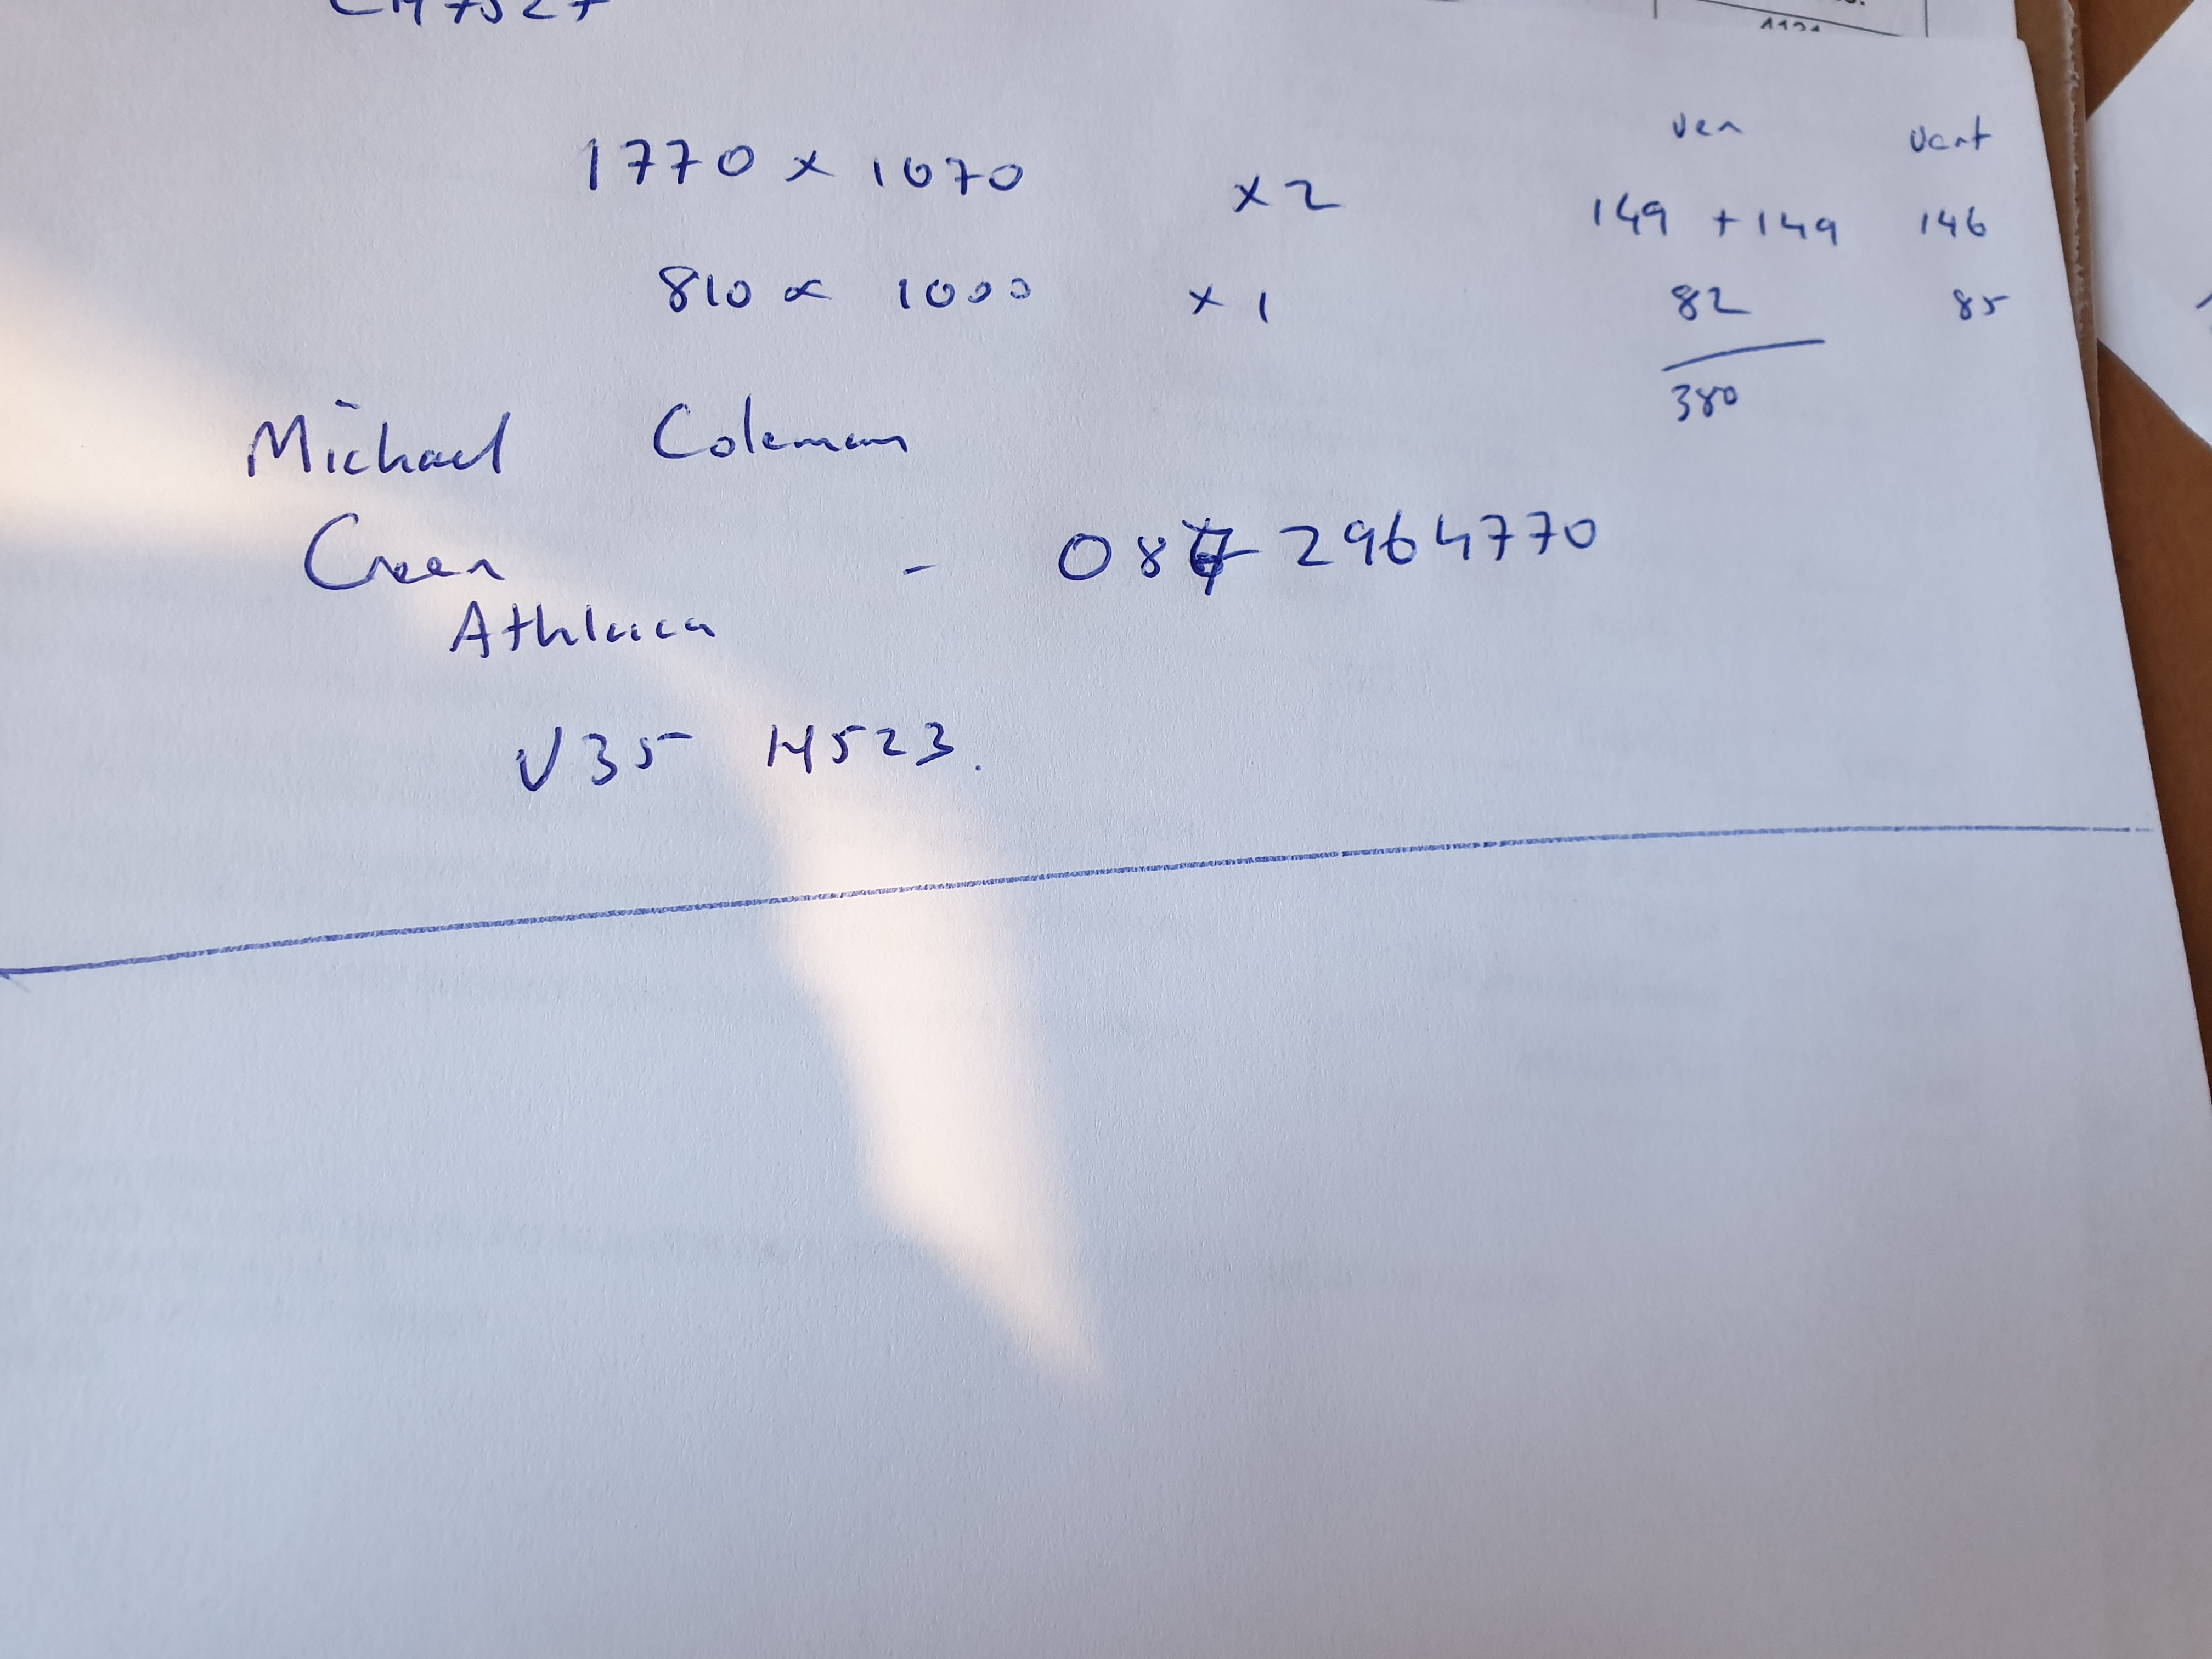 1770 x 1070 x 2
810 x 1000 x 1
ven vent
149 + 149 146
82 85
380
Michael Coleman
Creen - 087 2964770
Athlacca
V35 H523.